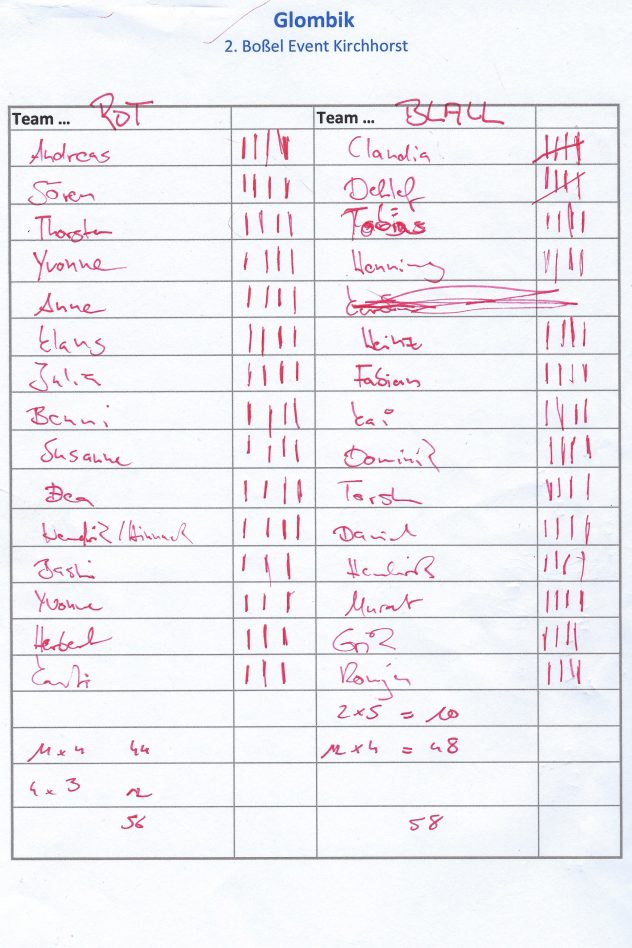 Glombik
2. Boßel Event Kirchhorst
Team ... ROT Team ... BLAU
Andreas |||| Claudia ||||
Sören |||| Detlef ||||
Thorsten |||| Tobias ||||
Yvonne |||| Henning ||||
Anne ||||
Klaus |||| Heinz ||||
Julia |||| Fabian ||||
Benni |||| Kai ||||
Susanne |||| Dominik ||||
Bea |||| Torsten ||||
Hendrik/Hinnack |||| Daniel ||||
||| Hendrik ||||
Yvonne ||| Murat ||||
Herbert ||| ||||
||| ||||
2 x 5 = 10
11 x 4 44 12 x 4 = 48
4 x 3 12
56 58